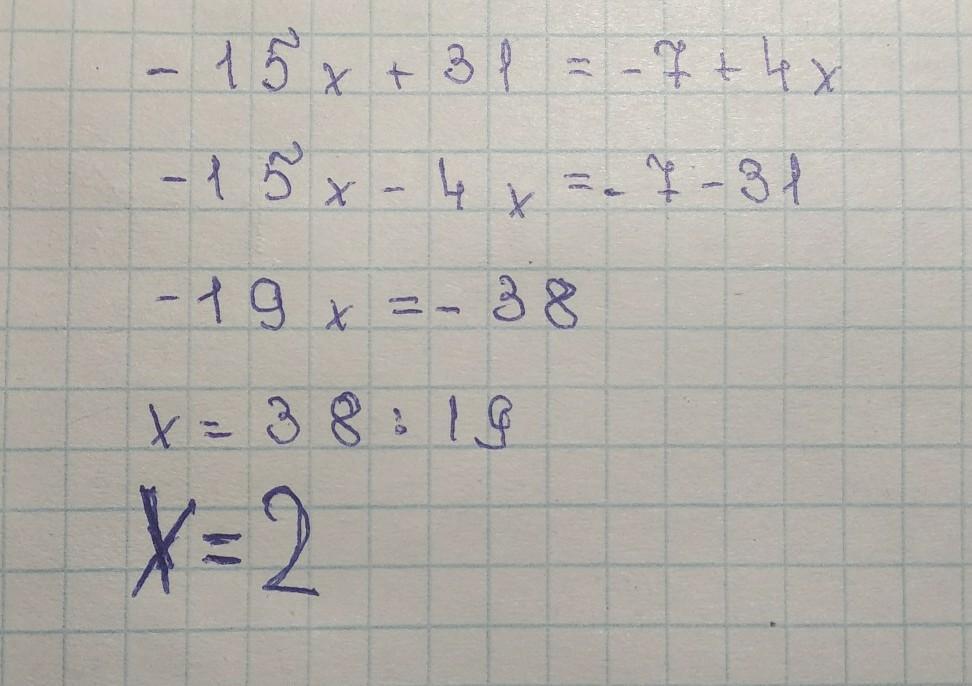 - 15x + 31 = -7 + 4x
-15x - 4x = -7 - 31
-19x = -38
x = 38 : 19
X = 2